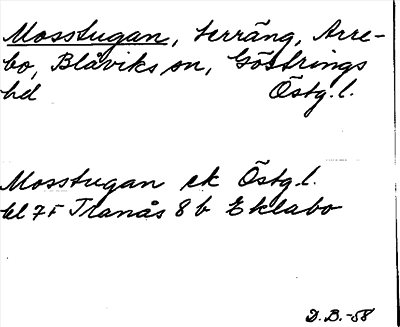 Mosstugan, terräng, Arre-
bo, Blåviks sn, Göstrings
hd Östg.l.
Mosstugan ek Östg.l.
bl 7F Tranås 8b Eklabo
D.B.-58